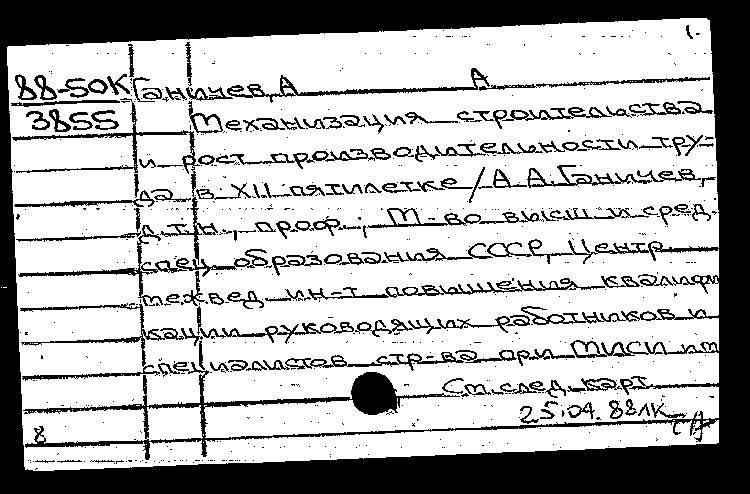 1.
88-50К Ганичев, А А
3855 Механизация строительства
и рост производительности тру-
да в XII пятилетке / А А. Ганичев,
д.т.н., проф.; М-во высш и сред.
спец образования СССР, Центр
межвед. ин-т повышения квалифи
кации руководящих работников и
специалистов стр-ва при МИСИ им
См. след. карт
25.04.88
8